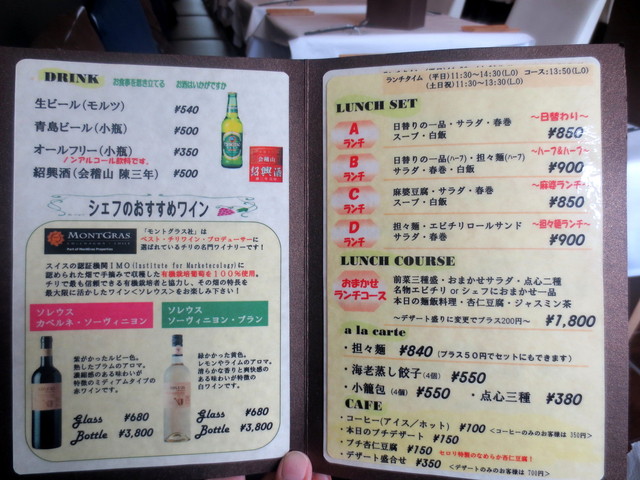 DRINK お食事を惹き立てる お酒はいかがですか
生ビール(モルツ) ¥540
青島ビール(小瓶) ¥500
オールフリー(小瓶) ¥350
ノンアルコール飲料です。
紹興酒(会稽山 陳三年) ¥500
会稽山
紹興酒
シェフのおすすめワイン
MONTGRAS
「モントグラス社」は
ベスト・チリワイン・プロデューサーに
選ばれているチリの名門ワイナリーです!
スイスの認証機関IMO(Institute for Marketecology)に
認められた畑で手摘みで収穫した有機栽培葡萄を100%使用。
チリで最も信頼できる有機栽培者と協力し、その畑の特長を
最大限に活かしたワイン<ソレウス>をお楽しみ下さい!
ソレウス
カベルネ・ソーヴィニヨン
紫がかったルビー色。
熟したプラムのアロマ。
凝縮感のある味わいが
特徴のミディアムタイプの
赤ワインです。
Glass ¥680
Bottle ¥3,800
ソレウス
ソーヴィニヨン・ブラン
緑かかった黄色。
レモンやライムのアロマ。
清らかな香りと爽快感
のある味わいが特徴の
白ワインです。
Glass ¥680
Bottle ¥3,800
ランチタイム (平日)11:30~14:30(L.O) コース:13:50(L.O)
(土日祝)11:30~13:30(L.O)
LUNCH SET
~日替わり~
A ランチ
日替りの一品・サラダ・春巻
スープ・白飯 ¥850
~ハーフ&ハーフ~
B ランチ
日替りの一品(ハーフ)・担々麺(ハーフ)
サラダ・春巻・白飯 ¥900
~麻婆ランチ~
C ランチ
麻婆豆腐・サラダ・春巻
スープ・白飯 ¥850
~担々麺ランチ~
D ランチ
担々麺・エビチリロールサンド
サラダ・春巻 ¥900
LUNCH COURSE
おまかせ
ランチコース
前菜三種盛・おまかせサラダ・点心二種
名物エビチリ or シェフにおまかせ一品
本日の麺飯料理・杏仁豆腐・ジャスミン茶
~デザート盛りに変更でプラス200円~ ¥1,800
a la carte
・担々麺 ¥840 (プラス50円でセットにもできます)
・海老蒸し餃子(4個) ¥550
・小籠包(4個) ¥550 ・点心三種 ¥380
CAFE
・コーヒー(アイス/ホット) ¥100 <コーヒーのみのお客様は 350円>
・本日のプチデザート ¥150
・プチ杏仁豆腐 ¥150 セロリ特製のなめらか杏仁豆腐!
・デザート盛合せ ¥350 <デザートのみのお客様は 700円>